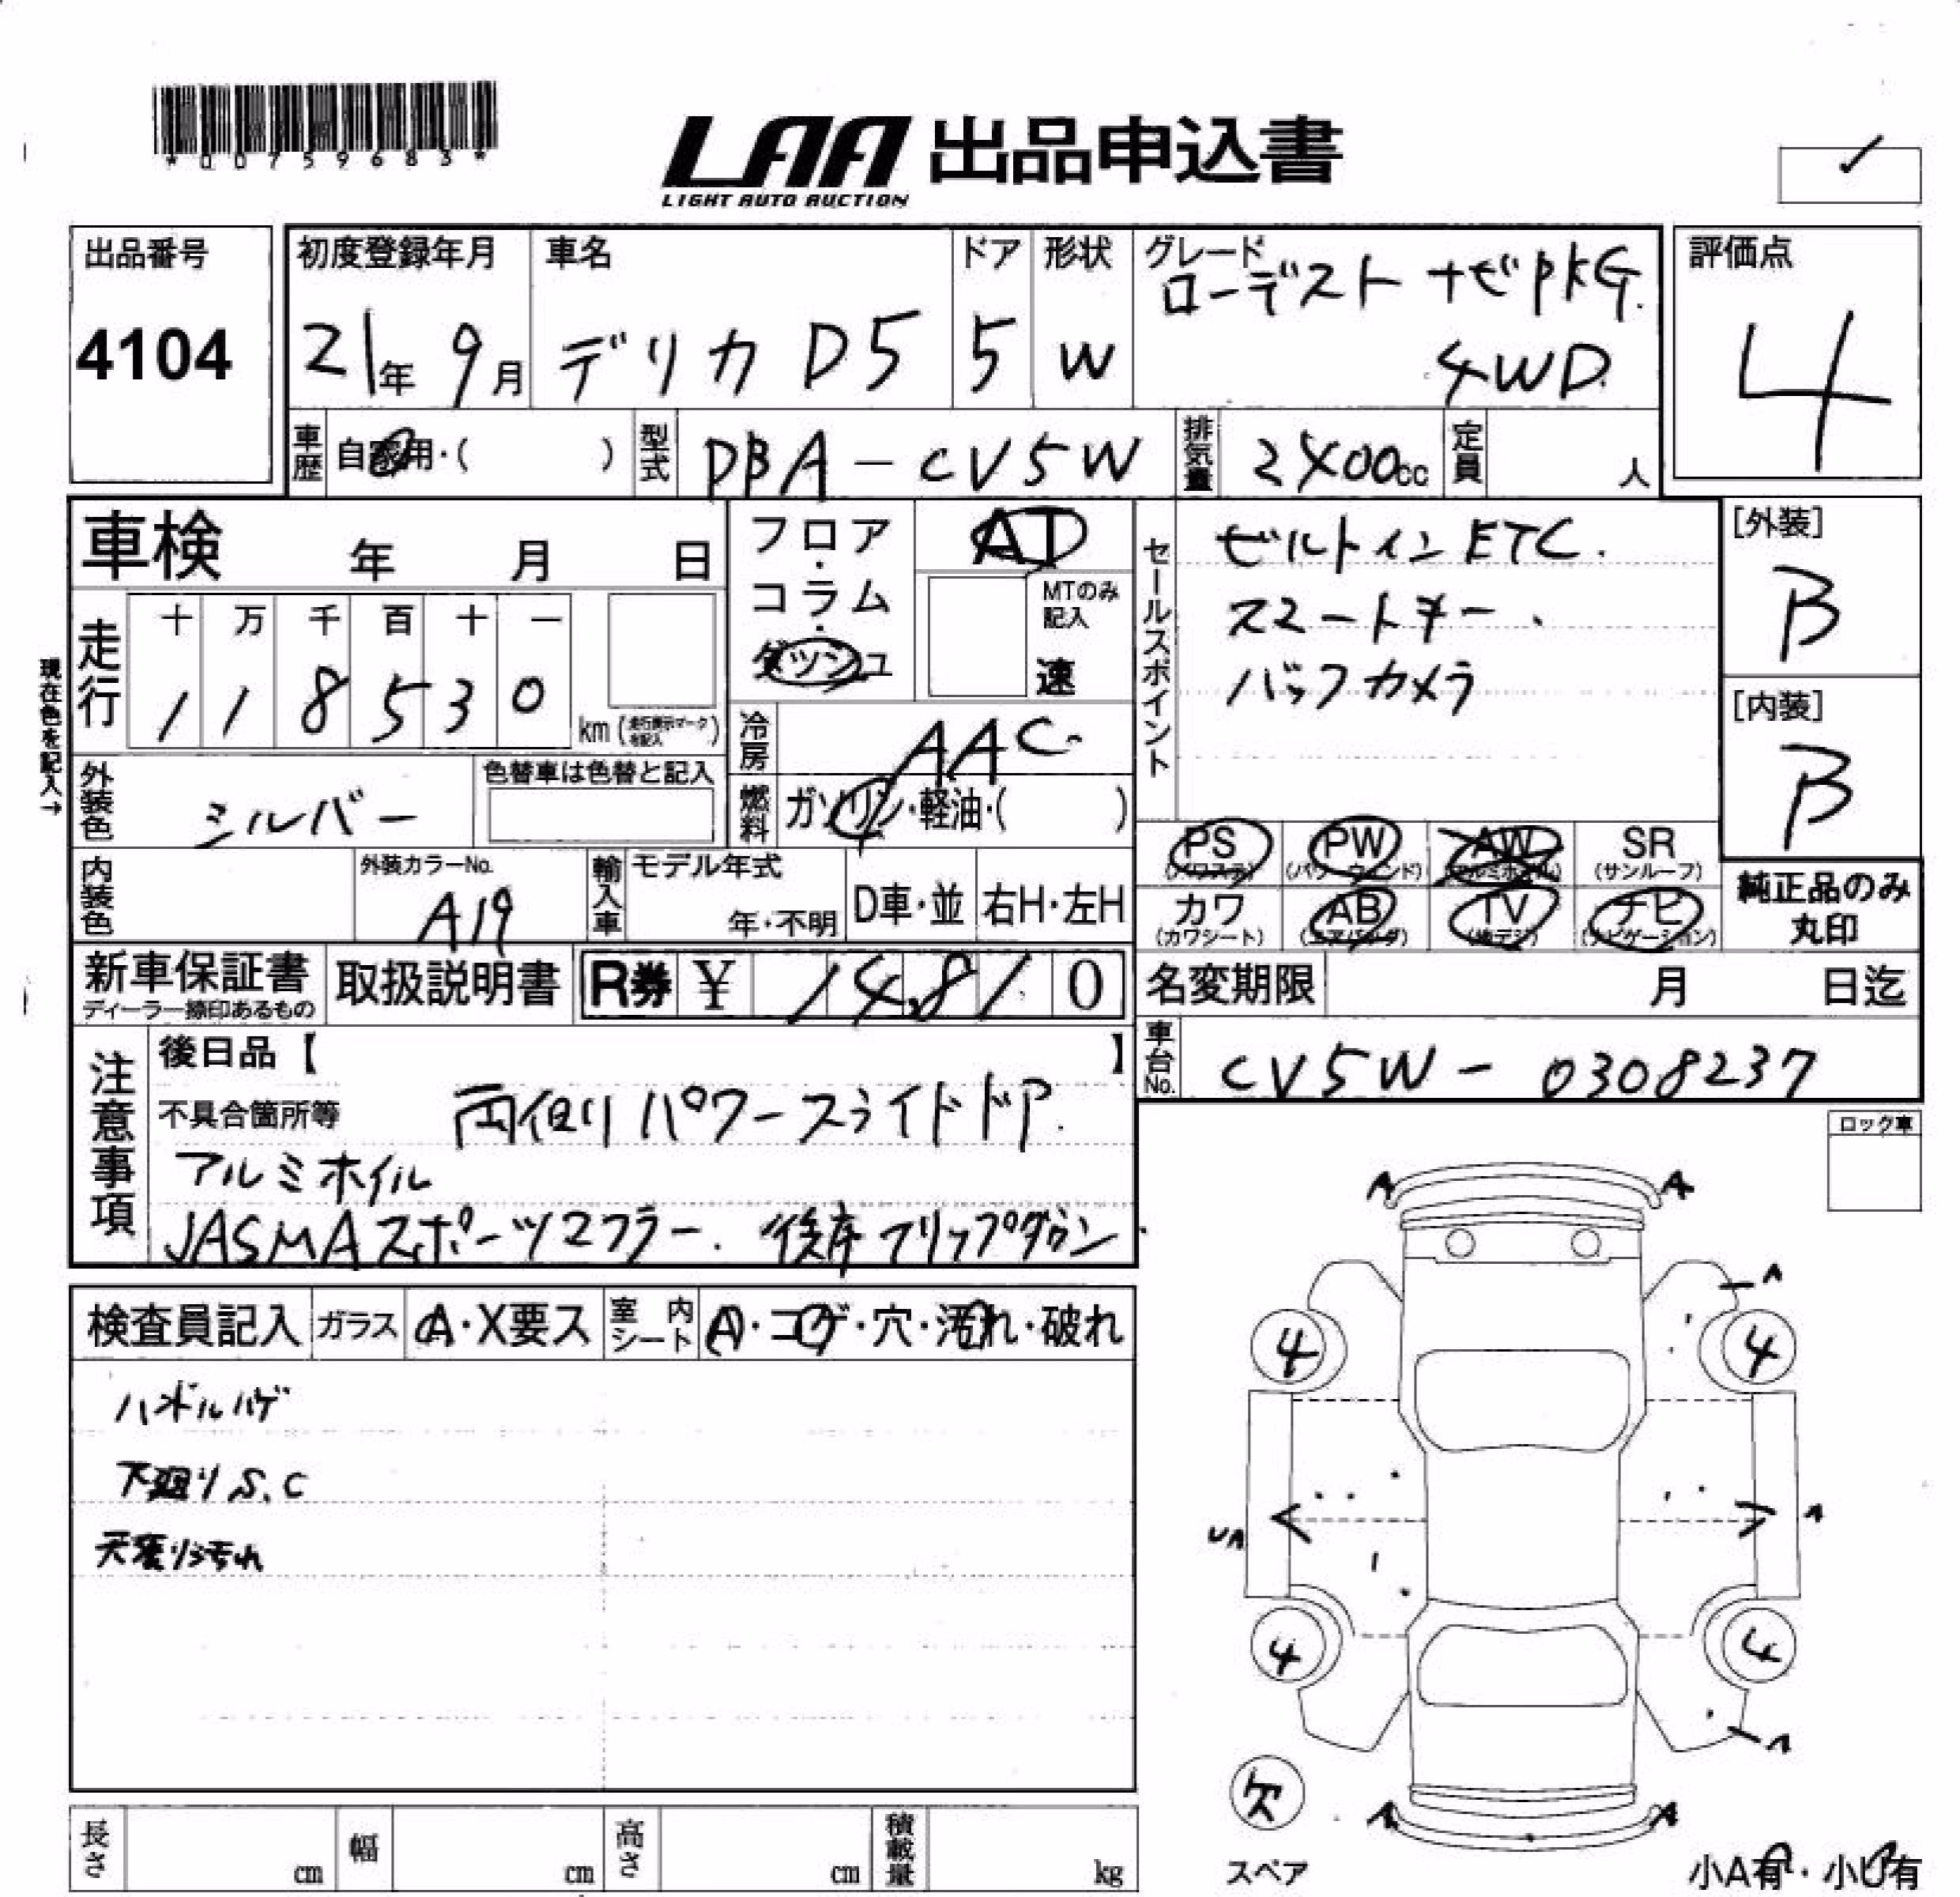 *00759683*
LAA 出品申込書
LIGHT AUTO AUCTION
出品番号
4104
初度登録年月
21年 9月
車名
デリカD5
ドア
5
形状
W
グレード
ローデスト ナビPKG.
4WD.
評価点
4
車歴 自家用・( )
型式 DBA-CV5W
排気量 2400cc
定員 人
車検 年 月 日
フロア・コラム・ダッシュ
AT
MTのみ記入
速
現在色を記入→
走行
十 万 千 百 十 一
1 1 8 5 3 0
km (走行表示マークを記入)
冷房 AAC
燃料 ガソリン・軽油・( )
外装色 シルバー
色替車は色替と記入
内装色
外装カラーNo.
A19
輸入車
モデル年式
年・不明
D車・並 右H・左H
セールスポイント
ビルトインETC.
スマートキー.
バックカメラ
[外装]
B
[内装]
B
PS (パワステ)
PW (パワーウィンド)
AW (アルミホイル)
SR (サンルーフ)
カワ (カワシート)
AB (エアバッグ)
TV (地デジ)
ナビ (ナビゲーション)
純正品のみ
丸印
新車保証書
ディーラー捺印あるもの
取扱説明書
R券 ¥ 14,810
名変期限 月 日迄
車台No. CV5W-0308237
注意事項
後日品【 】
不具合箇所等 両側パワースライドドア.
アルミホイル
JASMAスポーツマフラー. 後席フリップダウン.
ロック車
検査員記入 ガラス A・X要ス 室内シート A・コゲ・穴・汚れ・破れ
ハンドルハゲ
下廻りS.C
天張り汚れ
A A
A
4 4
UA A
4 4
A
欠
A A
スペア
小A有・小U有
長さ cm
幅 cm
高さ cm
積載量 kg